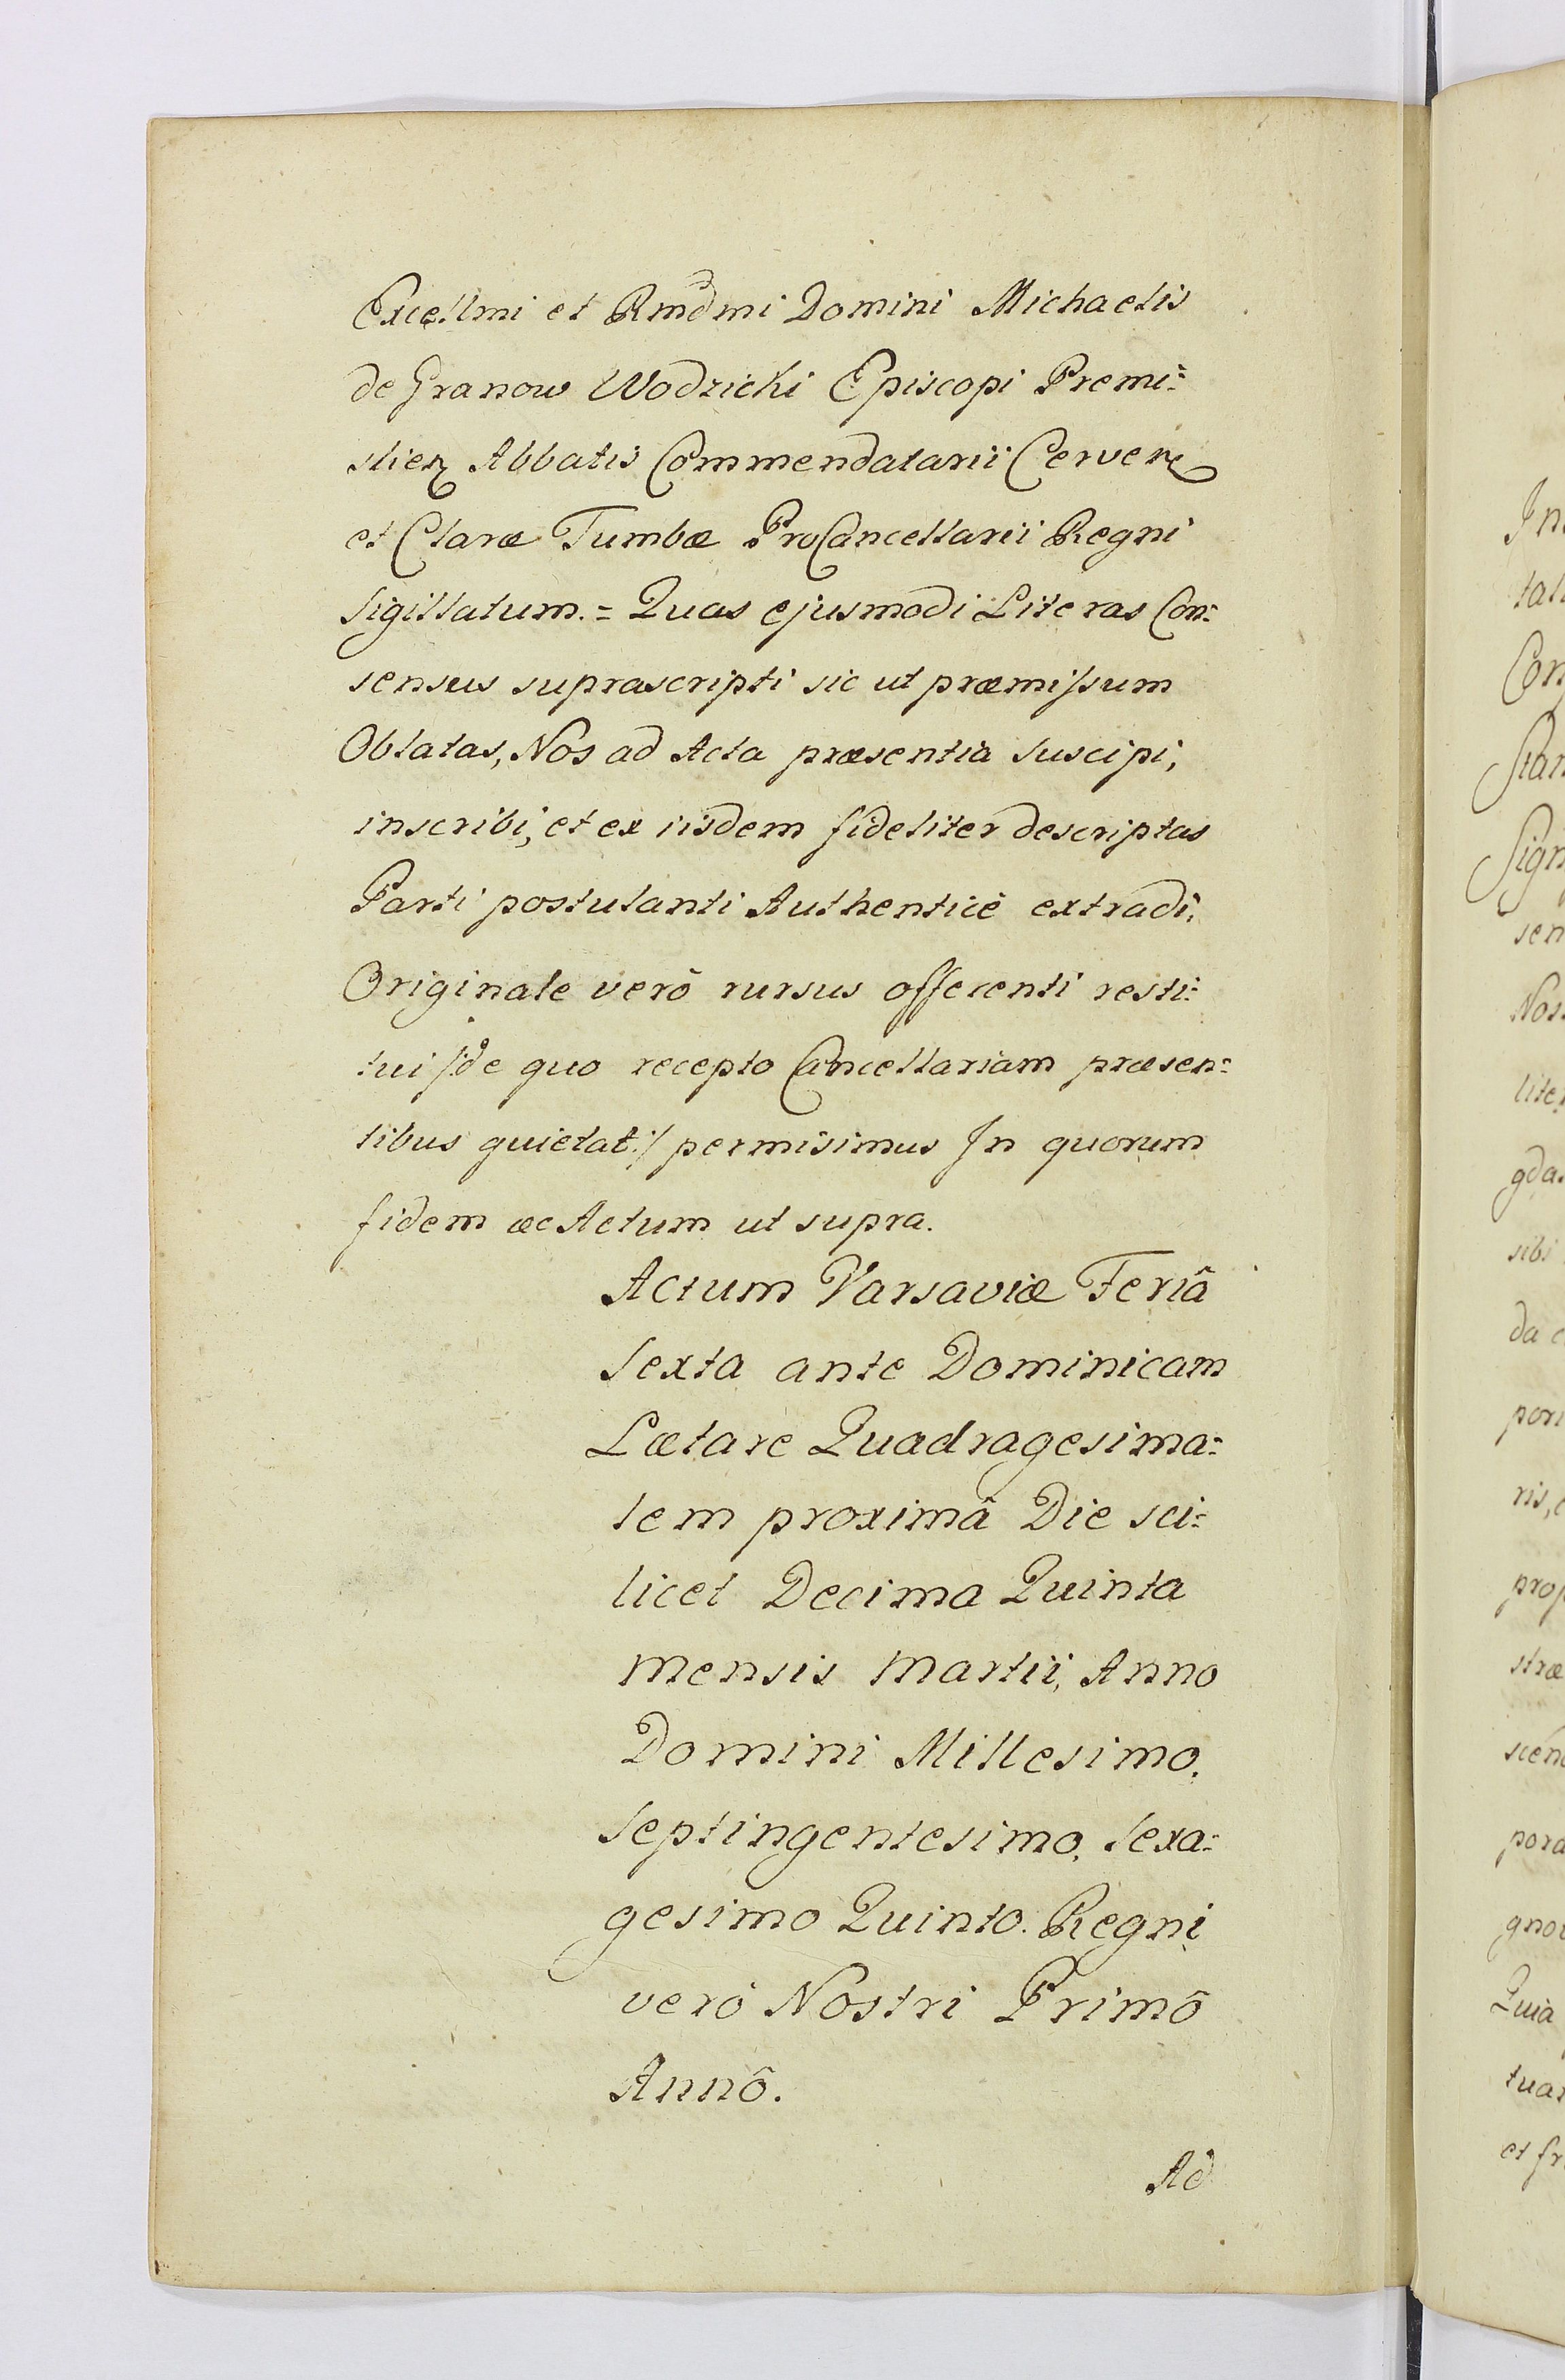 Excellmi et Rmdmi Domini Michaelis
de Granow Wodzicki Episcopi Premi=
slien Abbatis Commendatarii Cerven
et Claræ Tumbæ ProCancellarii Regni
Sigillatum. = Quas ejusmodi Literas Con=
sensus suprascripti sic ut præmissum
Oblatas, Nos ad Acta præsentia suscipi,
inscribi, et ex iisdem fideliter descriptas
Parti postulanti Authenticè extradi,
Originale verò rursus offerenti resti=
tui /:de quo recepto Cancellariam præsen=
tibus quietat:/ permisimus In quorum
fidem &c Actum ut supra.
Actum Varsaviæ Feriâ
Sexta ante Dominicam
Lætare Quadragesima=
lem proximâ Die sci=
licet Decima Quinta
Mensis Martii, Anno
Domini Millesimo,
Septingentesimo, Sexa=
gesimo Quinto. Regni
verò Nostri Primô
Annô.
Ad
In
tali
Con
Stan
Sign
sen
Nos
liter
gda
sibi
da c
pori
ris, c
prop
stræ
scen
pora
gno
Quia
tuar
et fr